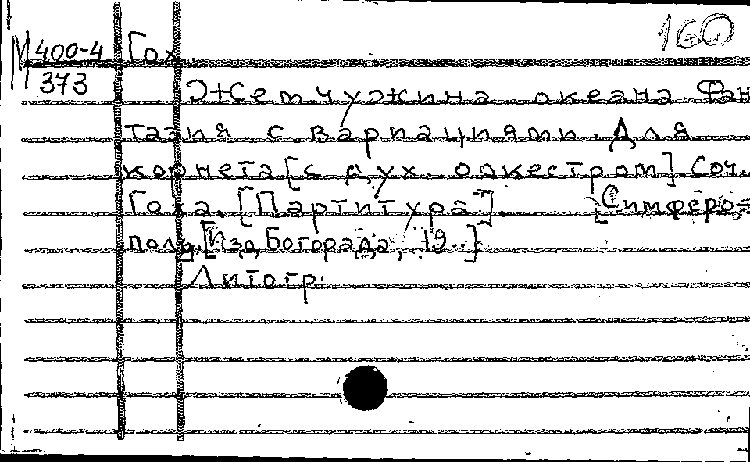 160
М 400-4 Гох.
373
Жемчужина океана Фан
тазия с вариациями. Для
корнета [с дух. оркестром] Соч.
Гоха. [Партитура]. [Симферо=
поль, [Изд Богорада, 19..]
Литогр.